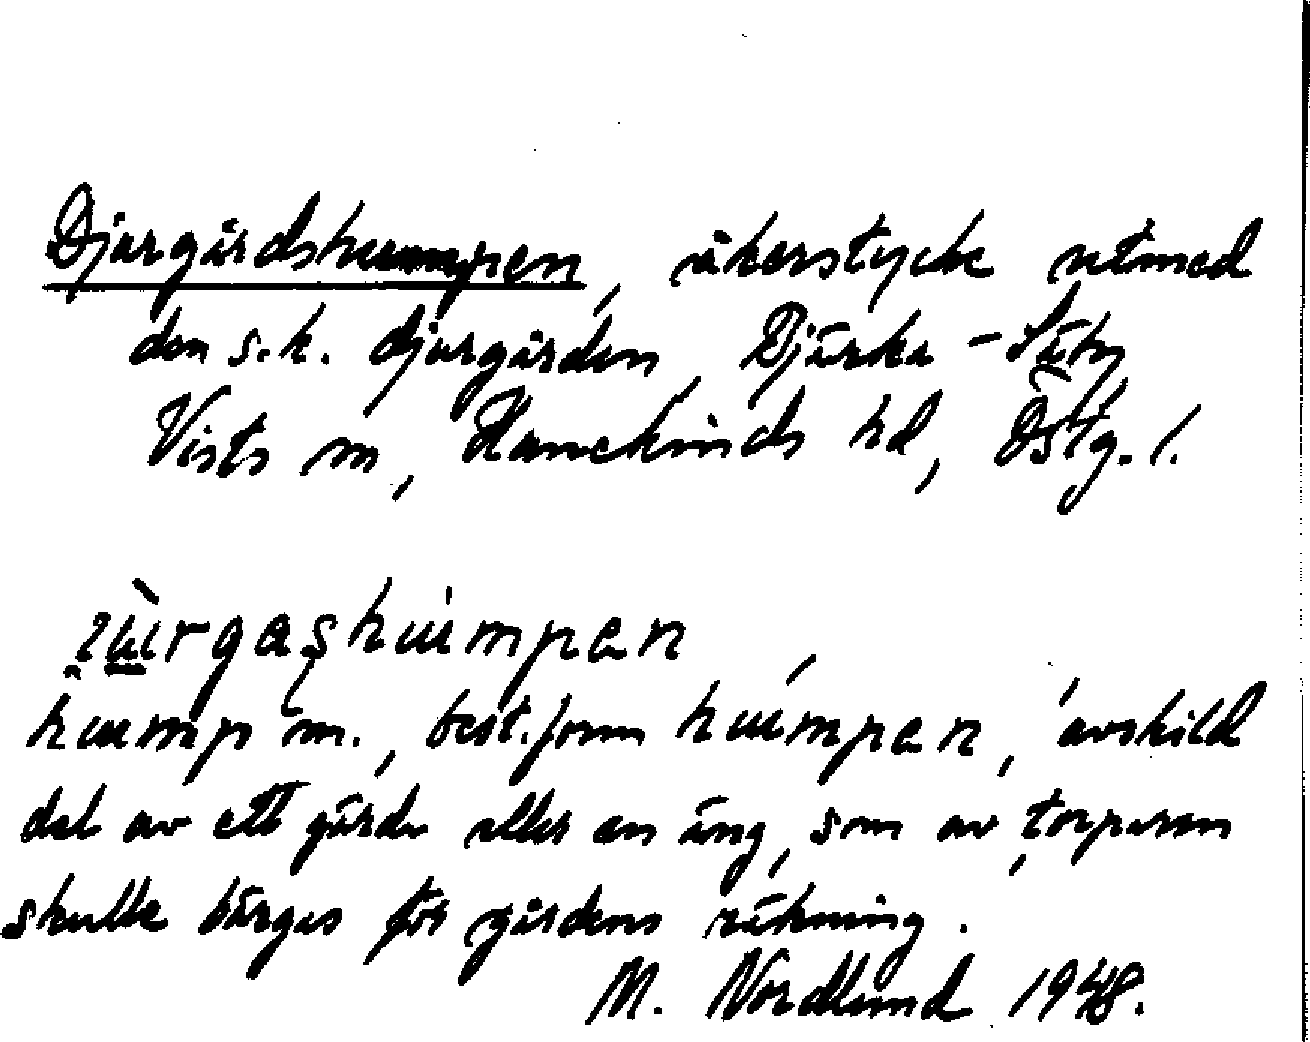 Djurgårdshumpen, åkerstycke utmed
den s.k. djurgården, Djurka-Säby
Vists sn, Hanekinds hd, Östg. l.
humpen
hump m., best. form humpen, 'avskild
del av ett gärde eller en äng, som av torparen
skulle bärgas för gårdens räkning.
M. Nordlund 1948.